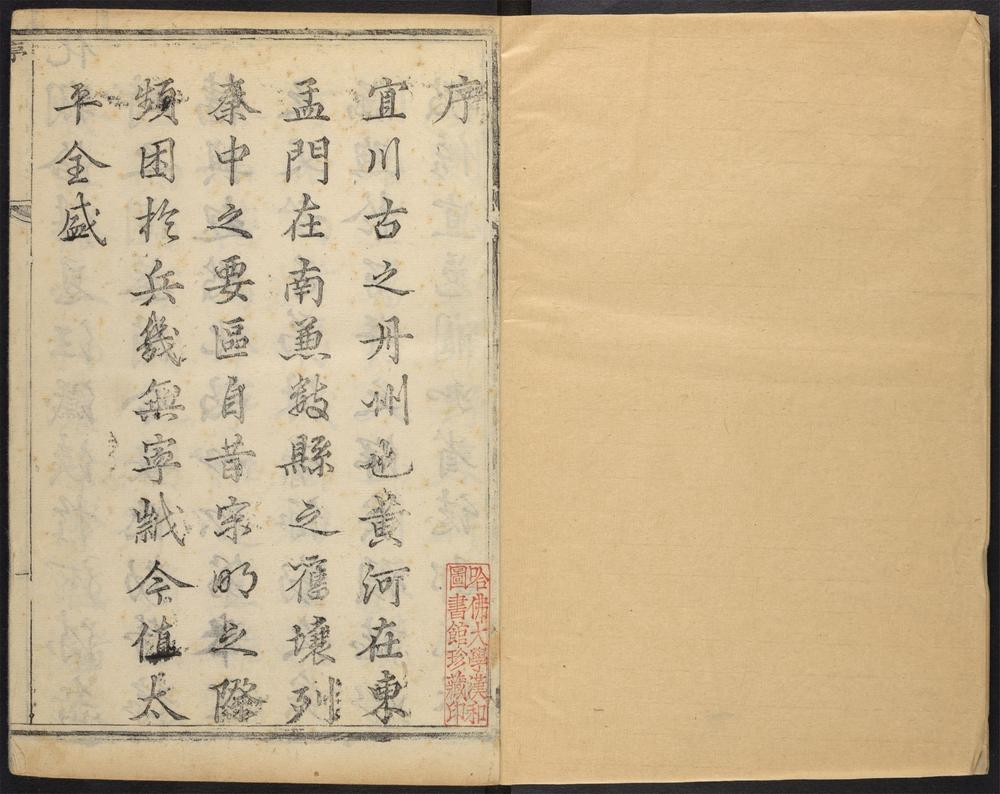 序
宜川古之丹州也黄河在東
孟門在南兼數縣之舊壤列
秦中之要區自昔宋明之際
頻困於兵幾無寧
今值太
平全盛
哈佛大學漢和
圖書館珍藏印